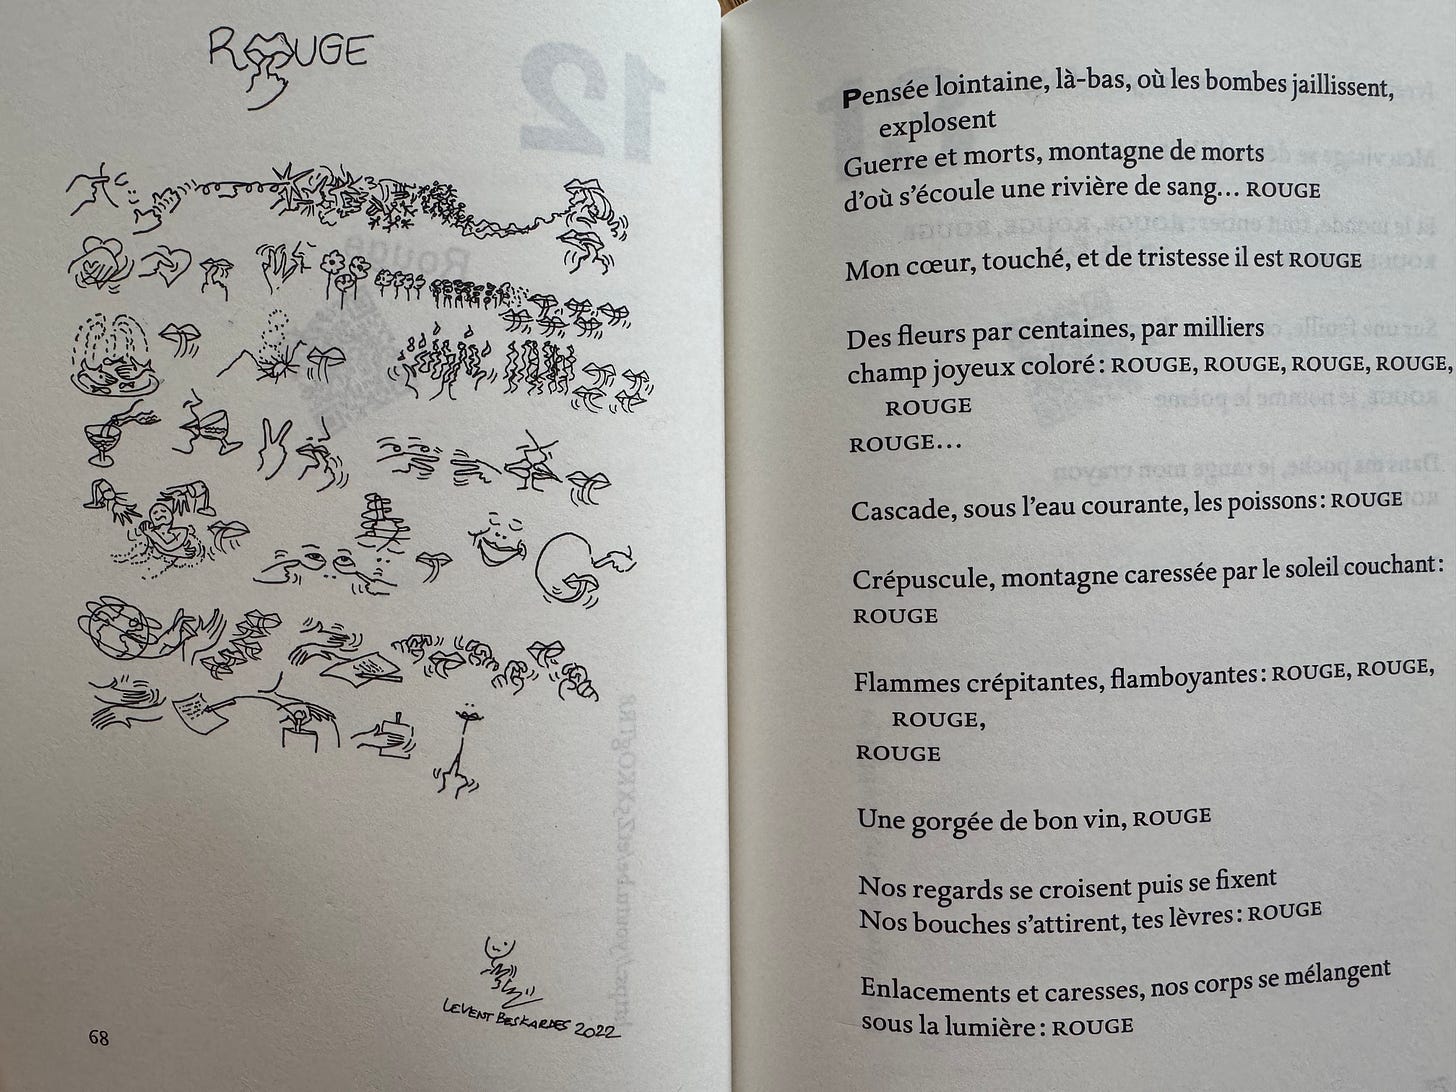 ROUGE
LEVENT BESKARDES 2022
68
Pensée lointaine, là-bas, où les bombes jaillissent,
explosent
Guerre et morts, montagne de morts
d’où s’écoule une rivière de sang… ROUGE
Mon cœur, touché, et de tristesse il est ROUGE
Des fleurs par centaines, par milliers
champ joyeux coloré : ROUGE, ROUGE, ROUGE, ROUGE,
ROUGE
ROUGE…
Cascade, sous l’eau courante, les poissons : ROUGE
Crépuscule, montagne caressée par le soleil couchant :
ROUGE
Flammes crépitantes, flamboyantes : ROUGE, ROUGE,
ROUGE,
ROUGE
Une gorgée de bon vin, ROUGE
Nos regards se croisent puis se fixent
Nos bouches s’attirent, tes lèvres : ROUGE
Enlacements et caresses, nos corps se mélangent
sous la lumière : ROUGE